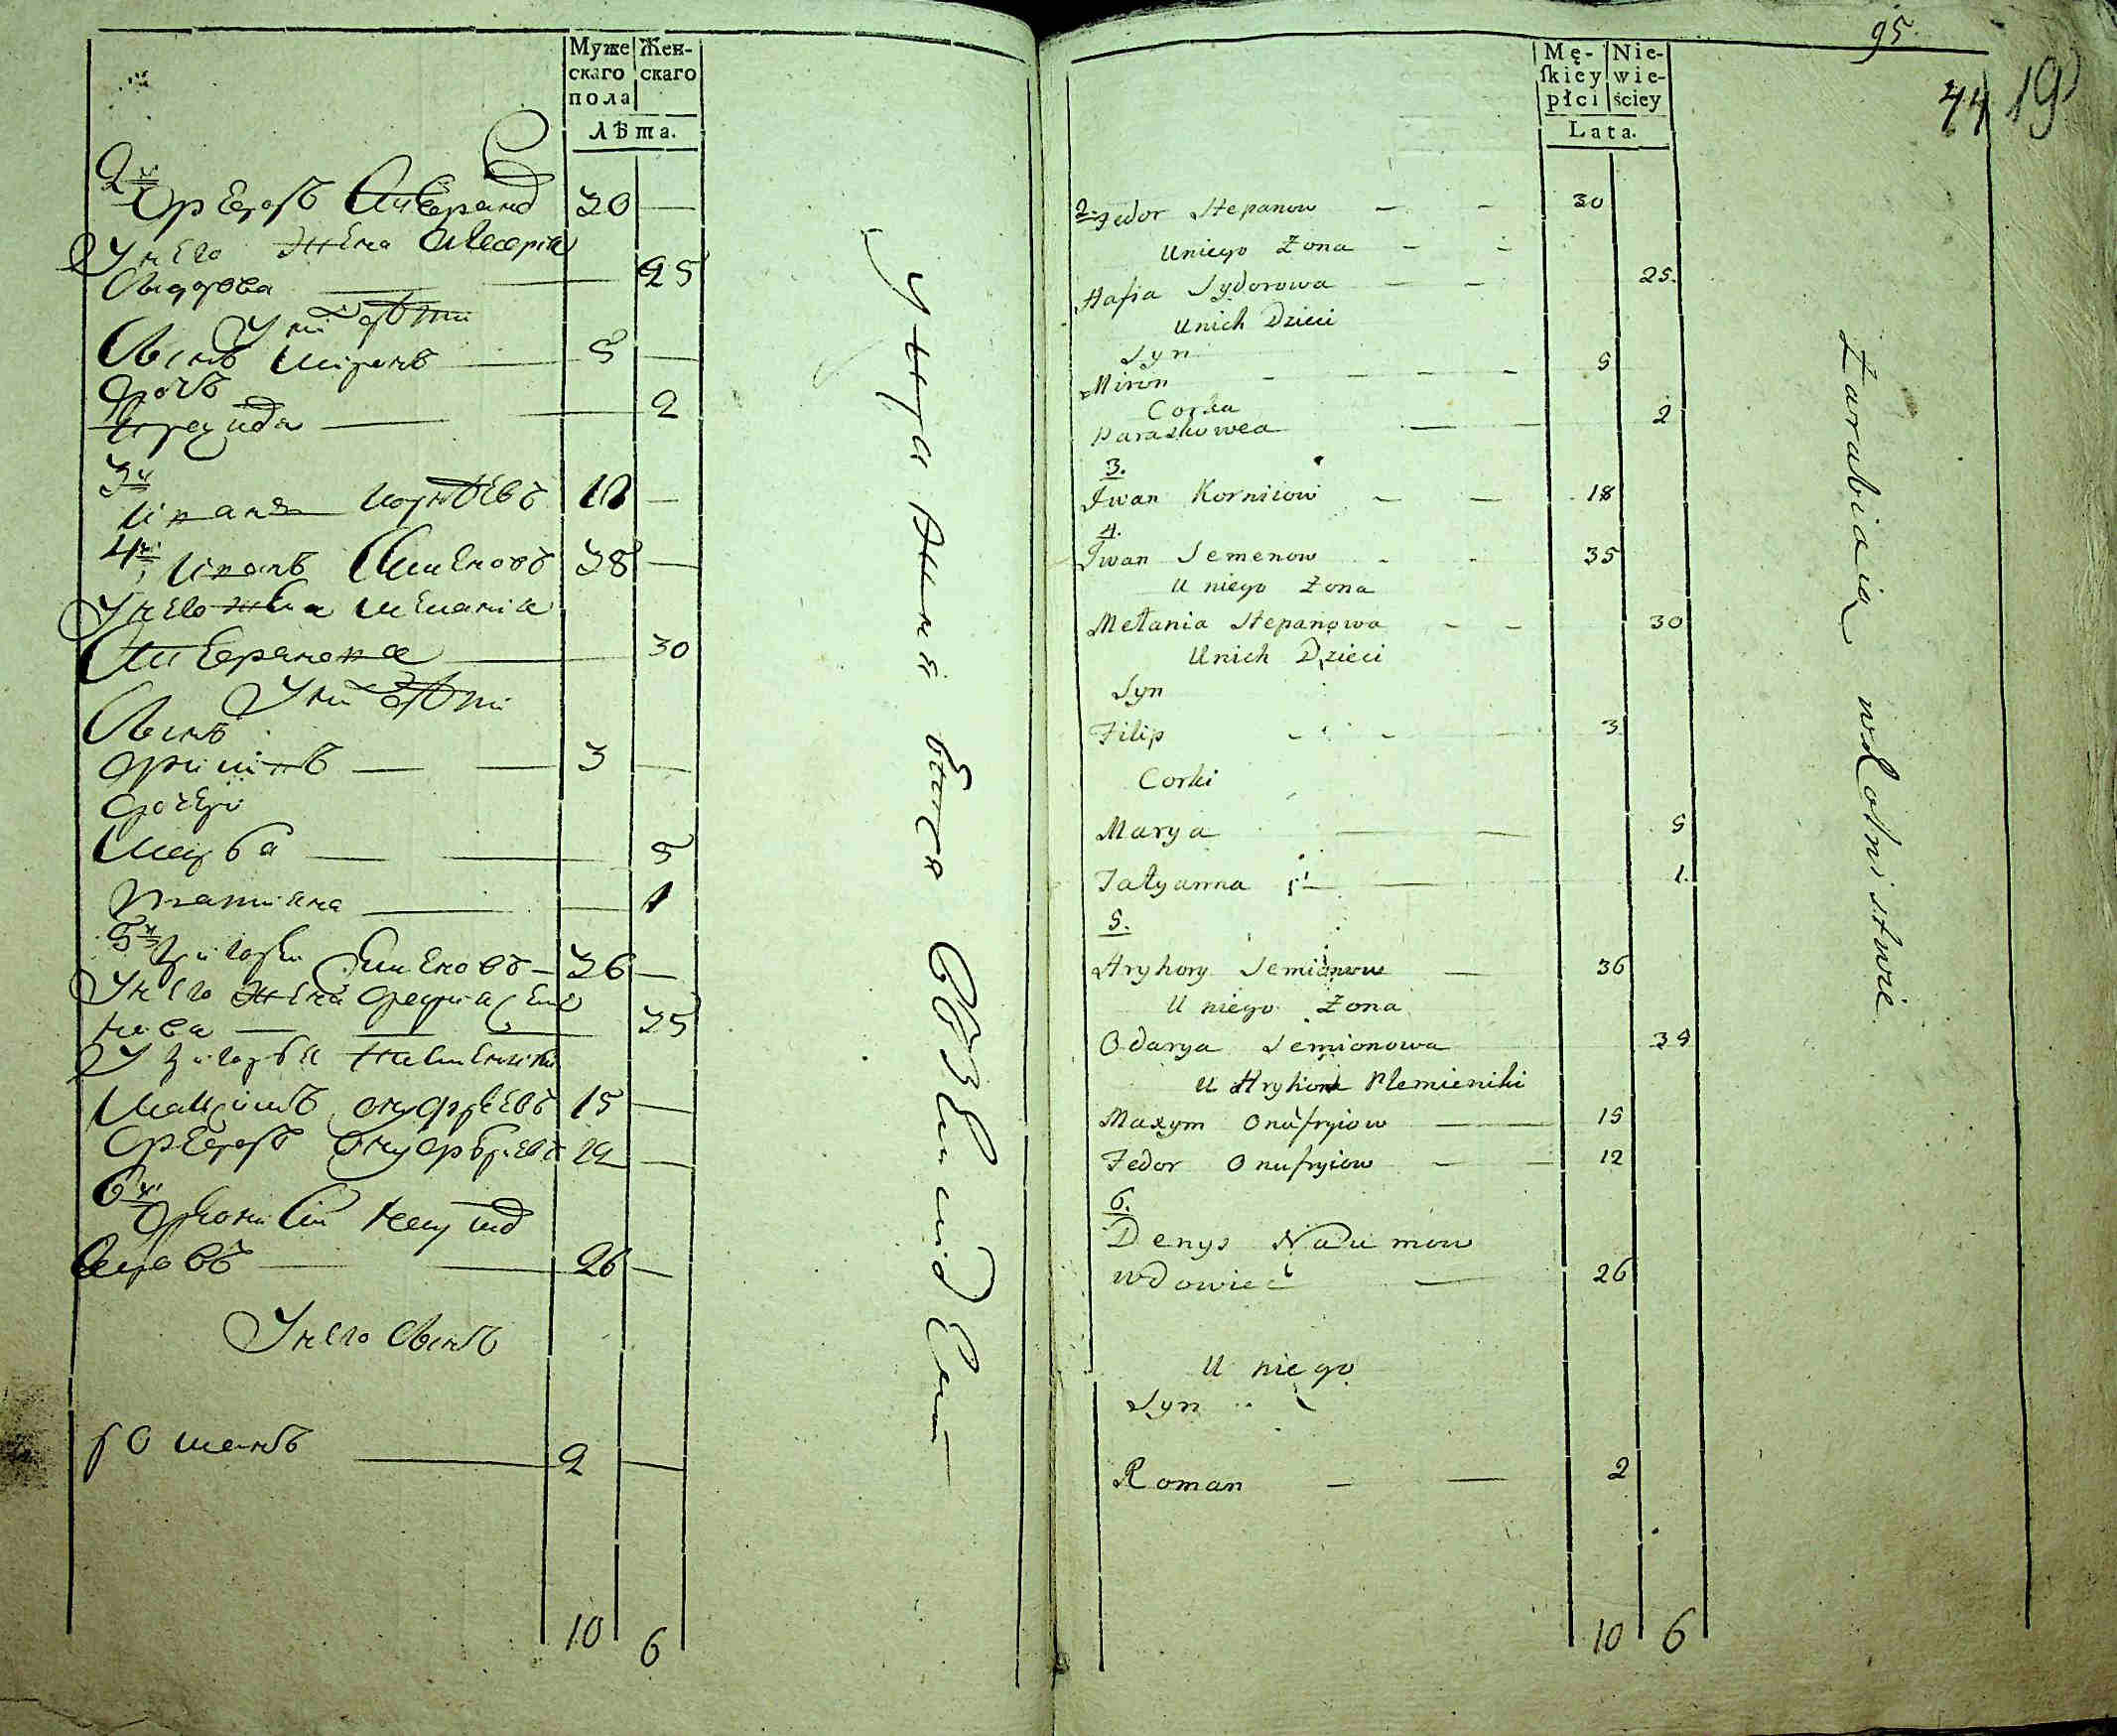 Муже
скаго
пола
Жен-
скаго
Лѣта.
2й
Федоръ Степанов 30 —
У него жена
Сидорова — 25
У ни дѣти
Сынъ Миронъ — 5 —
дочь
— 2
3й
Иванъ Корнѣевъ 18 —
4й Иванъ Семеновъ 38 —
У него жена Меланія
Степанова — 30
У ни дѣти
Сынъ
Филипъ — — 3 —
дочери
Марья — — 5
Татіяна — — 1
5й Григорей Семеновъ — 36 —
У него жена Семе
нова — — 35
У Григорья племеники
Максимъ Онуфріевъ 15 —
Федоръ Онуфріевъ 12 —
6й
Наумов
вдовъ — — 26 —
У него Сынъ
Романъ — 2 —
10 6
95
44 19
Mę-
ſkiey
płci
Nie-
wie-
ściey
Lata.
2. Fedor Stepanow — — 30
U niego Żona — —
Hafia Sydorowa — — 25.
U nich Dzieci
Syn
Miron — — — — 5
Corka
Paraskowea — — 2
3.
Iwan Kornieow — — 18
4.
Iwan Semenow — — 35
U niego Żona
Mełania Stepanowa — — 30
U nich Dzieci
Syn
Filip — — — 3
Corki
Marya — — 5
Tatyanna — — 1.
5.
Hryhory Semionow — 36
U niego Żona
Odarya Semionowa 35
U Hryhora Plemieniki
Maxym Onufryiow — 15
Fedor Onufryiow — — 12
6.
Denys Naumow
wdowiec — 26
U niego
Syn
Roman — — 2
10 6
Zarabiaią w rolnistwie